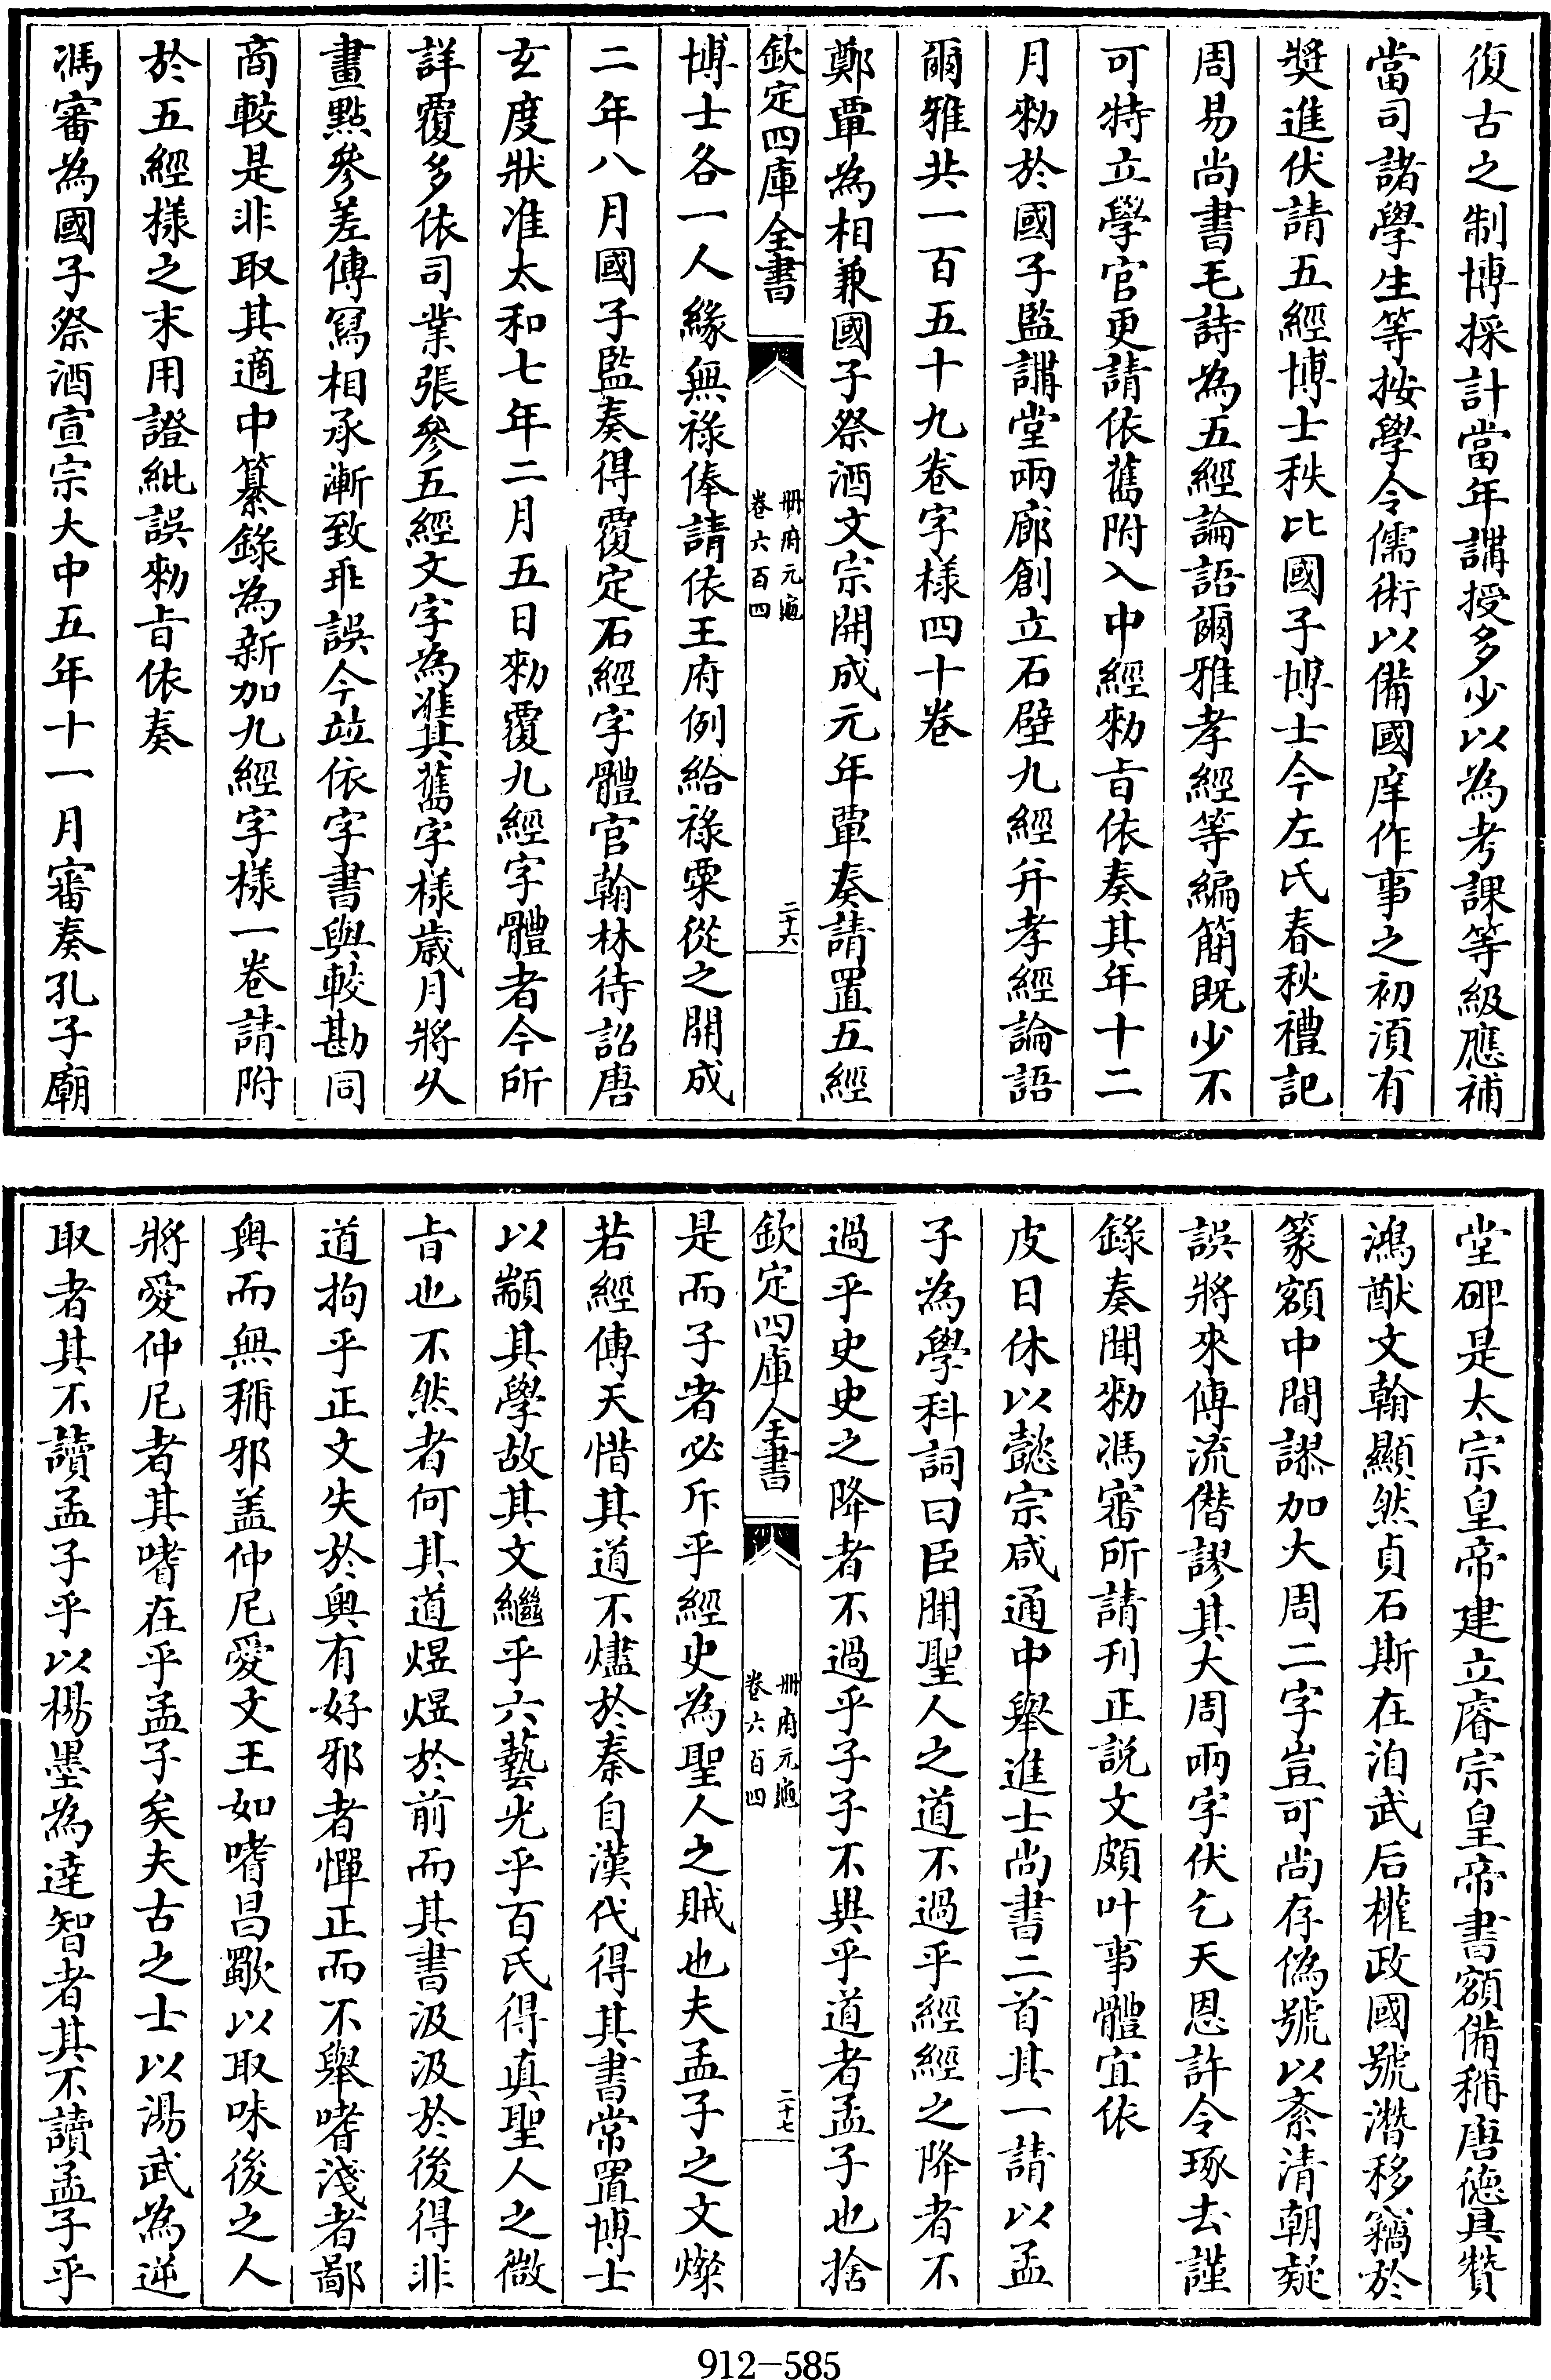 復古之制博採計當年講授多少以為考課等級應補
當司諸學生等按學令儒術以備國庠作事之初須有
奬進伏請五經博士秩比國子博士今左氏春秋禮記
周易尚書毛詩為五經論語爾雅孝經等編簡既少不
可特立學官更請依舊附入中經勑旨依奏其年十二
月勑於國子監講堂兩廊創立石壁九經并孝經論語
爾雅共一百五十九卷字樣四十卷
鄭覃為相兼國子祭酒文宗開成元年覃奏請置五經
欽定四庫全書
冊府元龜
卷六百四
二十六
博士各一人緣無祿俸請依王府例給祿粟從之開成
二年八月國子監奏得覆定石經字體官翰林待詔唐
玄度狀准太和七年二月五日勑覆九經字體者今所
詳覆多依司業張參五經文字為准其舊字樣歲月將久
畫點參差傳寫相承漸致乖誤今竝依字書與較勘同
商較是非取其適中纂錄為新加九經字樣一卷請附
於五經樣之末用證紕誤勑旨依奏
馮審為國子祭酒宣宗大中五年十一月審奏孔子廟
堂碑是太宗皇帝建立睿宗皇帝書額備稱唐德具贊
鴻猷文翰顯然貞石斯在洎武后權政國號潛移竊於
篆額中間謬加大周二字豈可尚存偽號以紊清朝疑
誤將來傳流僭謬其大周兩字伏乞天恩許令琢去謹
錄奏聞勑馮審所請刊正説文頗叶事體宜依
皮日休以懿宗咸通中舉進士尚書二首其一請以孟
子為學科詞曰臣聞聖人之道不過乎經經之降者不
過乎史史之降者不過乎子子不異乎道者孟子也捨
欽定四庫全書
冊府元龜
卷六百四
二十七
是而子者必斥乎經史為聖人之賊也夫孟子之文燦
若經傳天惜其道不燼於秦自漢代得其書常置博士
以顓其學故其文繼乎六藝光乎百氏得真聖人之微
旨也不然者何其道煜煜於前而其書汲汲於後得非
道拘乎正文失於奧有好邪者憚正而不舉嗜淺者鄙
奧而無稱邪盖仲尼愛文王如嗜昌歜以取味後之人
將愛仲尼者其嗜在乎孟子矣夫古之士以湯武為逆
取者其不讀孟子乎以楊墨為達智者其不讀孟子乎
912-585